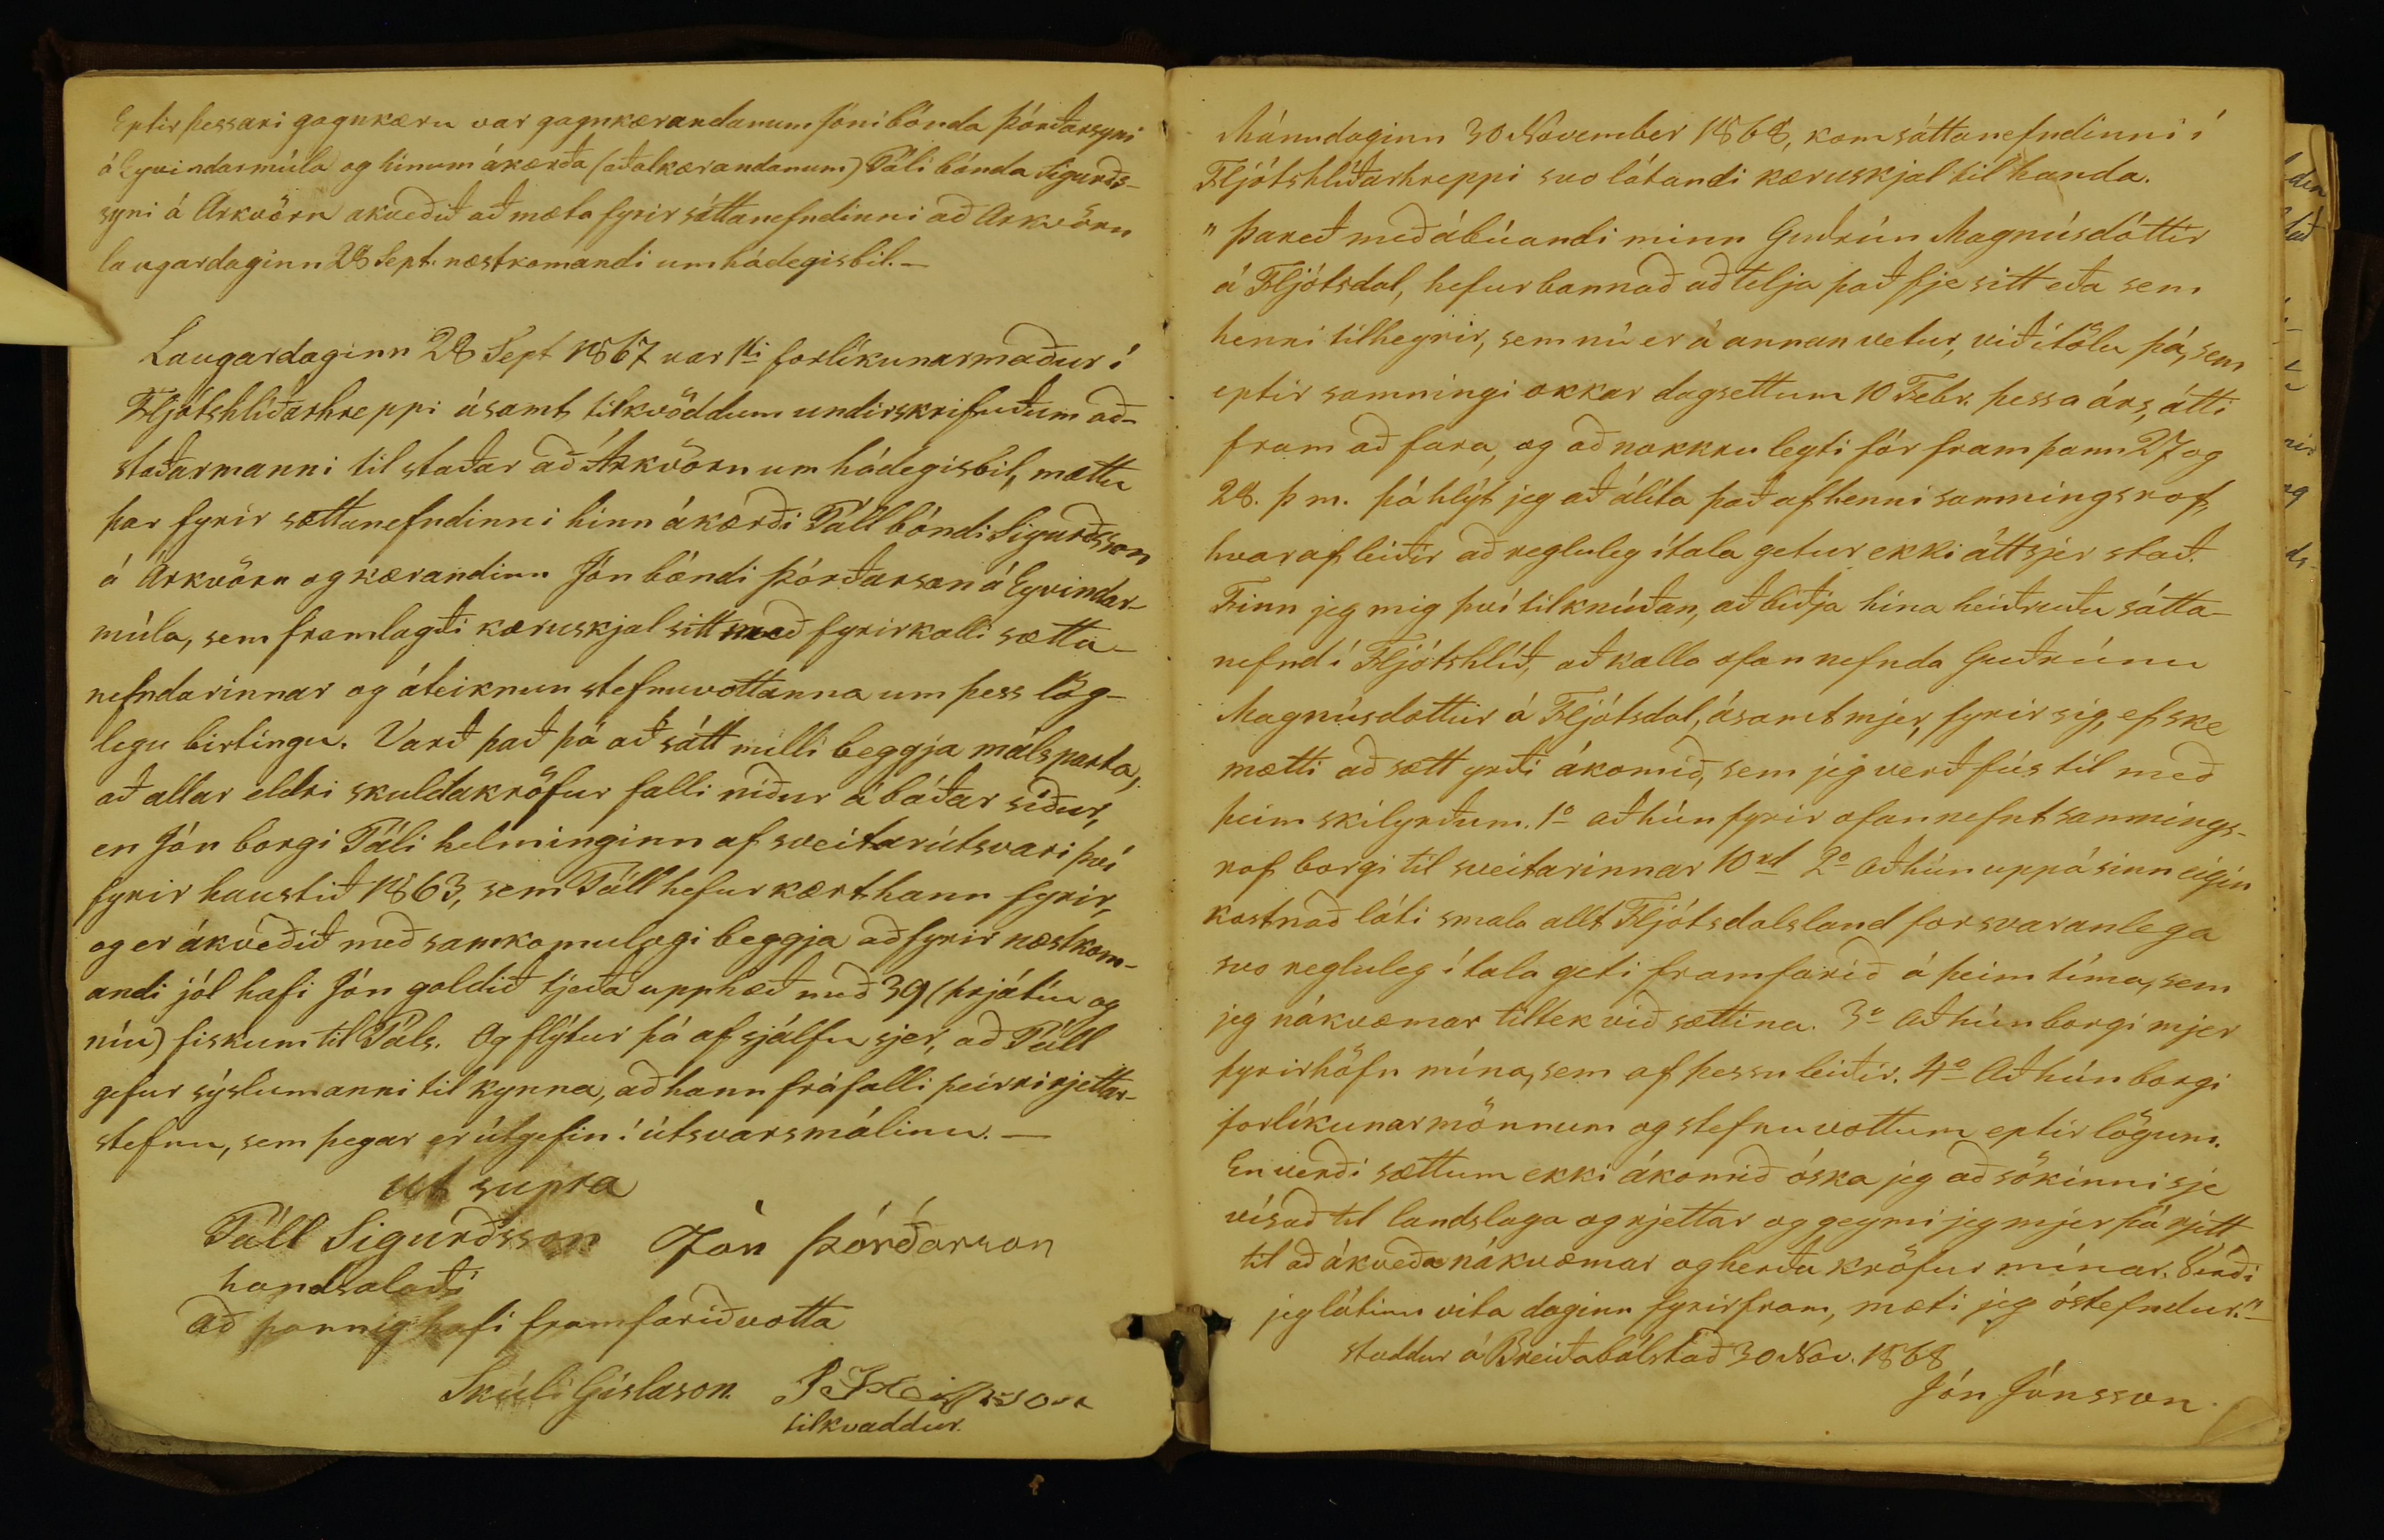 Eptir þessari gagnkæru var gagnkærandanum Jóni bónda Þórðarsyni
á Eyvindarmúla og hinum ákærða (aðalkærandanum) Páli bónda Sigurðs-
syni á Arkvörn akveðið að mæta fyrir sáttanefndinni að Arkvörn
laugardaginn 28 Sept. næstkomandi um hádegisbil. —
Laugardaginn 28 Sept 1867 var 1ti forlíkunarmaður í
Fljótshlíðarhreppi ásamt tilkvöddum undirskrifuðum að-
stoðarmanni til staðar að Árkvörn um hádegisbil, mættu
þar fyrir sættanefndinni hinn ákærði Páll bóndi Sigurðsson
á Árkvörn og kærandinn Jón bóndi Þórðarson á Eyvindar-
múla, sem framlagði kæruskjal sitt með fyrirkalli sætta-
nefndarinnar og áteiknun stefnuvottanna um þess lög-
legu birtingu. Varð það þá að sátt milli beggja málsparta,
að allar eldri skuldakröfur falli niður á báðar síður,
en Jón borgi Páli helminginn af sveitarútsvari því
fyrir haustið 1863, sem Páll hefur kært hann fyrir,
og er ákveðið með samkomulagi beggja að fyrir næstkom-
andi jól hafi Jón goldið tjeða upphæð með 39 (þrjátíu og
níu) fiskum til Páls. Og flýtur þá af sjálfu sjer, að Páll
gefur sýslumanni til kynna, að hann fráfalli þeirri rjettar-
stefnu, sem þegar er útgefin í útsvarsmálinu. —
ut supra
Páll Sigurðsson Jón Þórðarson
handsalaði
Að þannig hafi framfarið votta
Skúli Gíslason.
tilkvaddur.
Mánudaginn 30 November 1868, kom sáttanefndinni í
Fljótshlíðarhreppi svo látandi kæruskjal til handa.
" Þareð meðábúandi minn Guðrún Magnúsdóttir
á Fljótsdal, hefur bannað að telja það fje sitt eða sem
henni tilheyrir, sem nú er á annan vetur, við ítölu þá, sem
eptir samningi okkar dagsettum 10 Febr. þessa árs, átti
fram að fara, og að nokkru leyti fór fram þann 27 og
28. þ m. þá hlýt jeg að álíta það af henni samningsrof,
hvar af leiðir að regluleg ítala getur ekki átt sjer stað.
Finn jeg mig því tilknúðan, að biðja hina heiðruðu sátta-
nefnd í Fljótshlíð, að kalla ofannefnda Guðrúnu
Magnúsdóttur á Fljótsdal, ásamt mjer, fyrir sig, ef ske
mætti að sætt yrði ákomið, sem jeg verð fús til með
þeim skilyrðum. 1o að hún fyrir ofannefnt samnings-
rof borgi til sveitarinnar 10 rd 2o Að hún uppá sinn eigin
kostnað láti smala allt Fljótsdalsland forsvaranlega
svo regluleg ítala geti framfarið á þeim tíma, sem
jeg nákvæmar tiltek við sættina. 3o Að hún borgi mjer
fyrirhöfn mína, sem af þessu leiðir. 4o Að hún borgi
forlíkunarmönnum og stefnuvottum eptir lögum.
En verði sættum ekki ákomið óska jeg að sökinni sje
vísað til landslaga og rjettar og geymi jeg mjer þá rjett
til að ákveða nákvæmar og herða kröfur mínar. Verði
jeg látinn vita daginn fyrirfram, mæti jeg óstefndur." —
staddur á Breiðabólstað 30 Nov. 1868
Jón Jónsson.